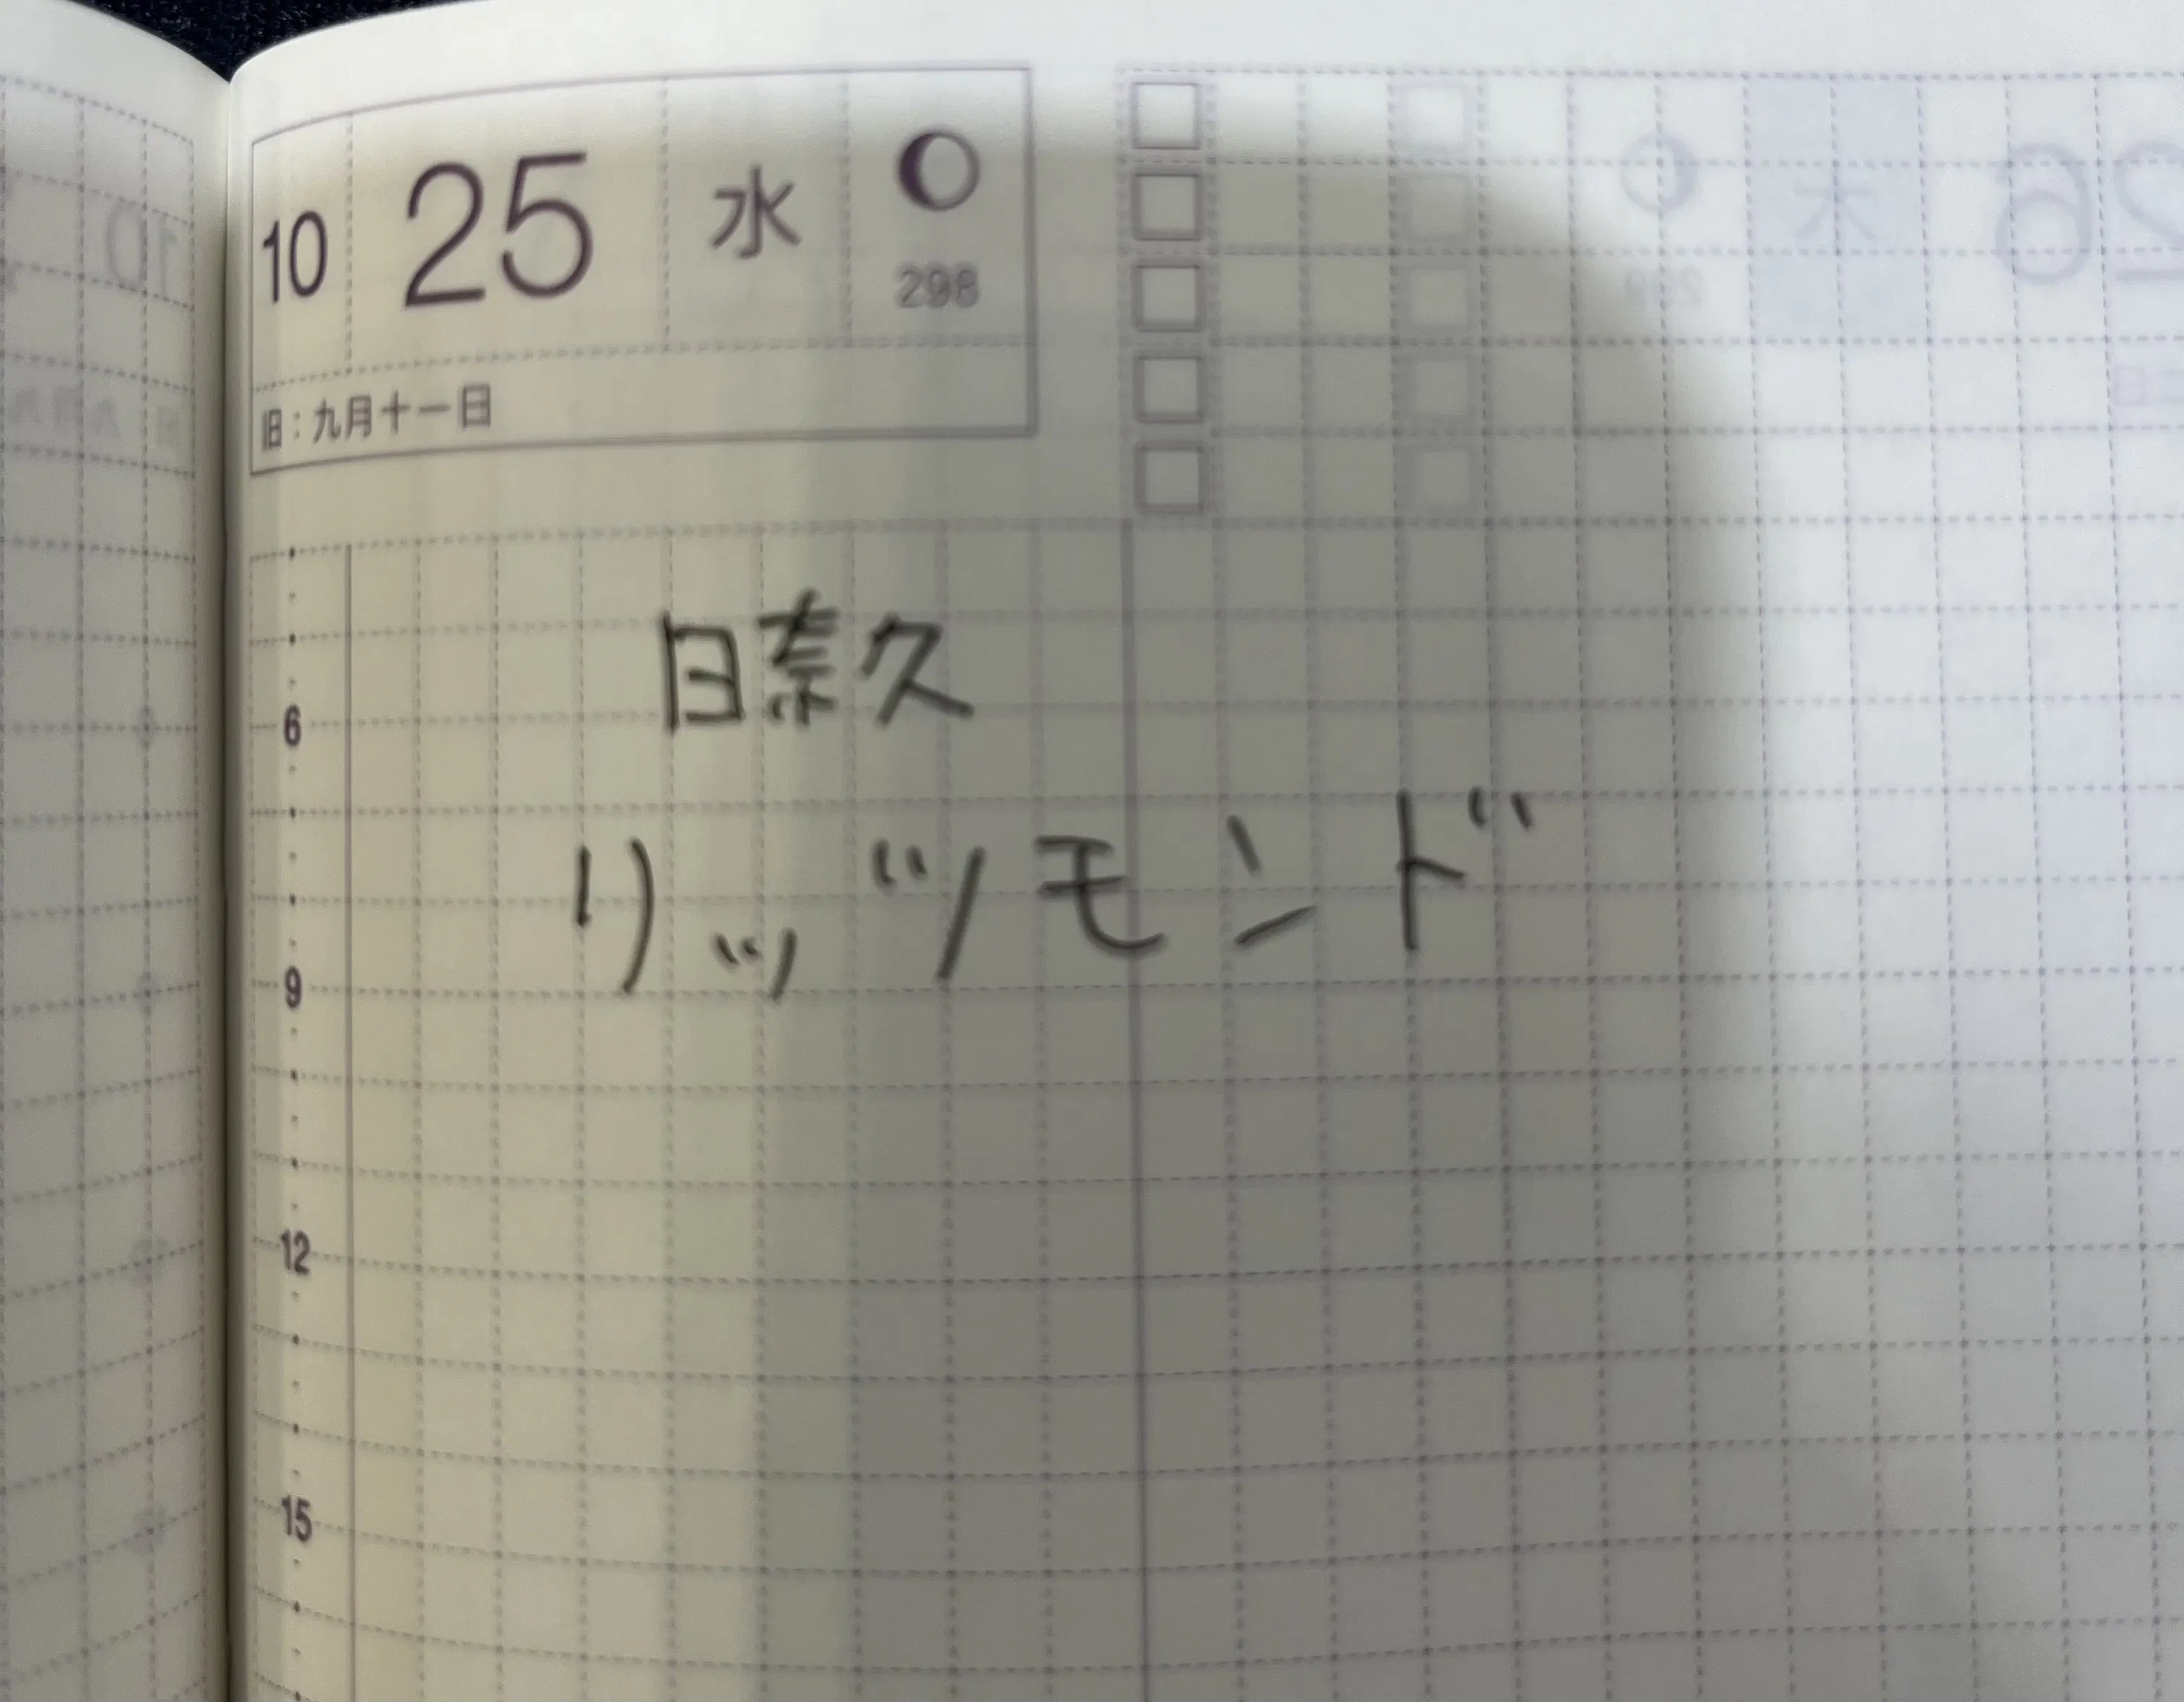 10 25 水
298
旧：九月十一日
日奈久
6
リッツモンド
9
12
15